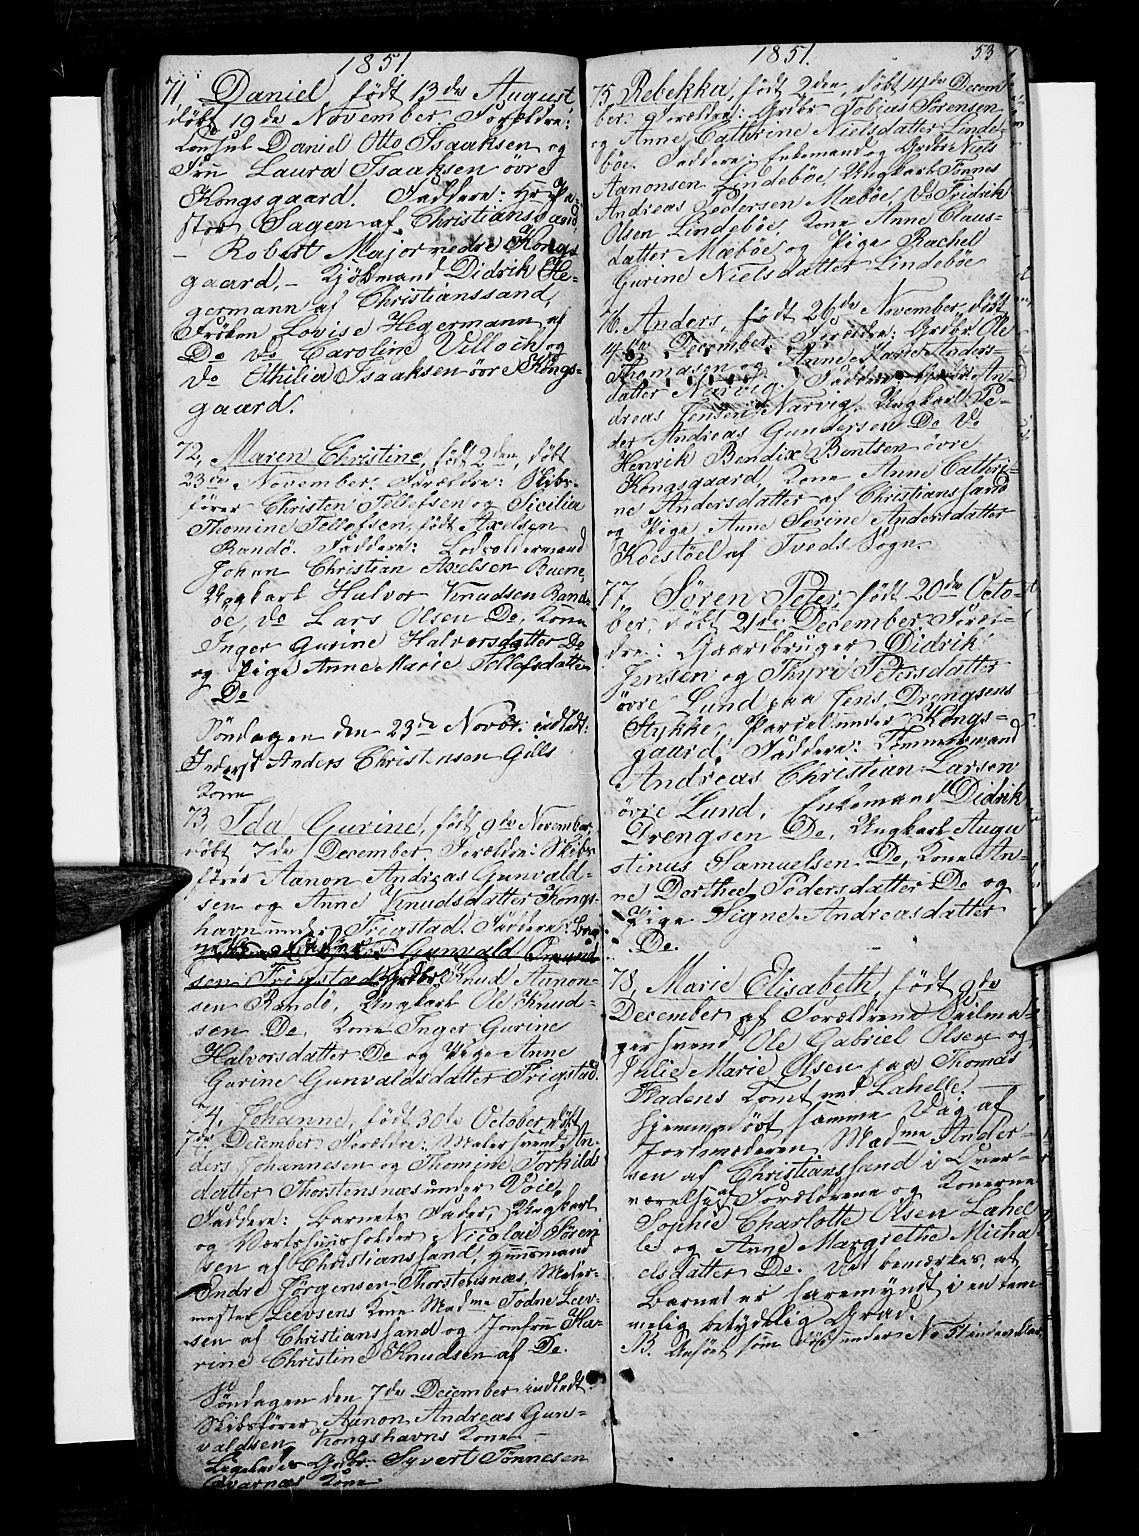 1851.
71, Daniel født 13de August
døbt 19de November. Forældre:
Konsul Daniel Otto Isaaksen og
Fru Laura Isaaksen øvre
Kongsgaard. Faddere: Hr Pa-
stor Sagen af Christianssand,
- Robert Major nedre Kongs
gaard, - Kjøbmand Didrik He-
germann af Christianssand,
Frøken Lovise Hegermann af
Do Do Caroline Villoch og
Do Othilia Isaaksen øvre Kongs-
gaard.
72, Maren Christine, født 2den, døbt
23de November. Forældre: Skibs-
fører Christen Tellefsen og Sicilia
Thomine Tellefsen, født Axelsen
Randø. Faddere: Lodsoldermand
Johan Christian Axelsen Buene,
Ungkarl Halvor Knudsen Rand-
øe, Do Lars Olsen Do, Kone
Inger Gurine Halvorsdatter Do
og Pige Anne Marie Tellefsdatter
Do
Søndagen den 23de Novbr. indledt:
Inderst Anders Christensen Gills
Kone
73, Ida Gurine, født 9de November,
døbt 7de December. Forældre: Skibs
fører Aanon Andreas Gunvald-
sen og Anne Knudsdatter Kongs-
havn under Frigstad. Faddere:
Gunvald Omund
sen Frigstad, Grdbr Knud Aanon-
sen Randø, Ungkarl Ole Knud-
sen Do, Kone Inger Gurine
Halvorsdatter Do og Pige Anne
Gurine Gunvaldsdatter Frigstad.
74, Johanne, født 30te October, døbt
7de December Forældre: Malersvend An-
ders Johannesen og Thomine Torkilds
datter Thorstensnæs under Voie,
Faddere: Barnets Fader, Ungkarl
og Værtshuusholder Nicolai Søren
sen af Christianssand, Huusmand
Endre Jörgensen Thorstensnæs, Maler-
mester Leevsens Kone Madme Todne Leev-
sen af Christianssand og Jomfru Ka-
rine Christine Knudsen af Do.
Søndagen den 7de December indledt:
Skibsfører Aanon Andreas Gun-
valdsen, Kongshavns Kone -
Ligeledes Grbr. Syvert Tønnesen
Kone.
1851. 53
75, Rebekka, født 2den, døbt 14de Decem-
ber. Forældre: Grdbr Tobias Sørensen
og Anne Cathrine Nielsdatter Linde-
bøe. Faddere: Enkemand og Grdbr Niels
Aanonsen Lindebøe, Ungkarl Tønnes
Andreas Pedersen Mæbøe, Do Fridrik
Olsen Lindebøe, Kone Anne Claus-
datter Mæbøe og Pige Rachel
Gurine Nielsdatter Lindebøe
76, Anders, født 26de November, døbt
14de December. Forældre: Grdbr Ole
Thomasen og Anne Marie Anders-
datter Narvig. Faddere: Grdbr An-
dreas Jensen Narvig, Ungkarl Pe-
der Andreas Gundersen Do Do
Henrik Bendix Bentsen øvre
Kongsgaard, Kone Anne Cathri-
ne Andersdatter af Christianssand
og Pige Anne Serine Andersdatter
Koestøel af Tveds Sogn.
77, Søren Peter, født 20de Octo-
ber, døbt 21de December. Foræl-
dre: Gaardbruger Didrik
Jensen og Thyri Petersdatter
øvre Lund paa Jens Drengsens
Stykke, Parcel under Kongs-
gaard. Faddere: Tømmermand
Andreas Christian Larsen
øvre Lund, Enkemand Didrik
Drengsen Do, Ungkarl Augu
stinus Samuelsen Do, Kone An-
ne Dorthea Pedersdatter Do og
Pige Signe Andreasdatter
Do.
78, Marie Elisabeth, født 9de
December af Forældrene Seilma-
gersvend Ole Gabriel Olsen og
Julie Marie Olsen paa Thomas
Fladens Tomt ved Lahelle. -
Hjemmedøbt samme Dag af
Jordmoderen Madme Ander-
sen af Christianssand i Over-
værelse af Forældrene og Konerne
Sophie Charlotte Olsen Lahel
le og Anne Margrethe Micha-
elsdatter Do. Det bemærkes, at
Barnet er haremyndt i en tem
melig betydelig Grad.